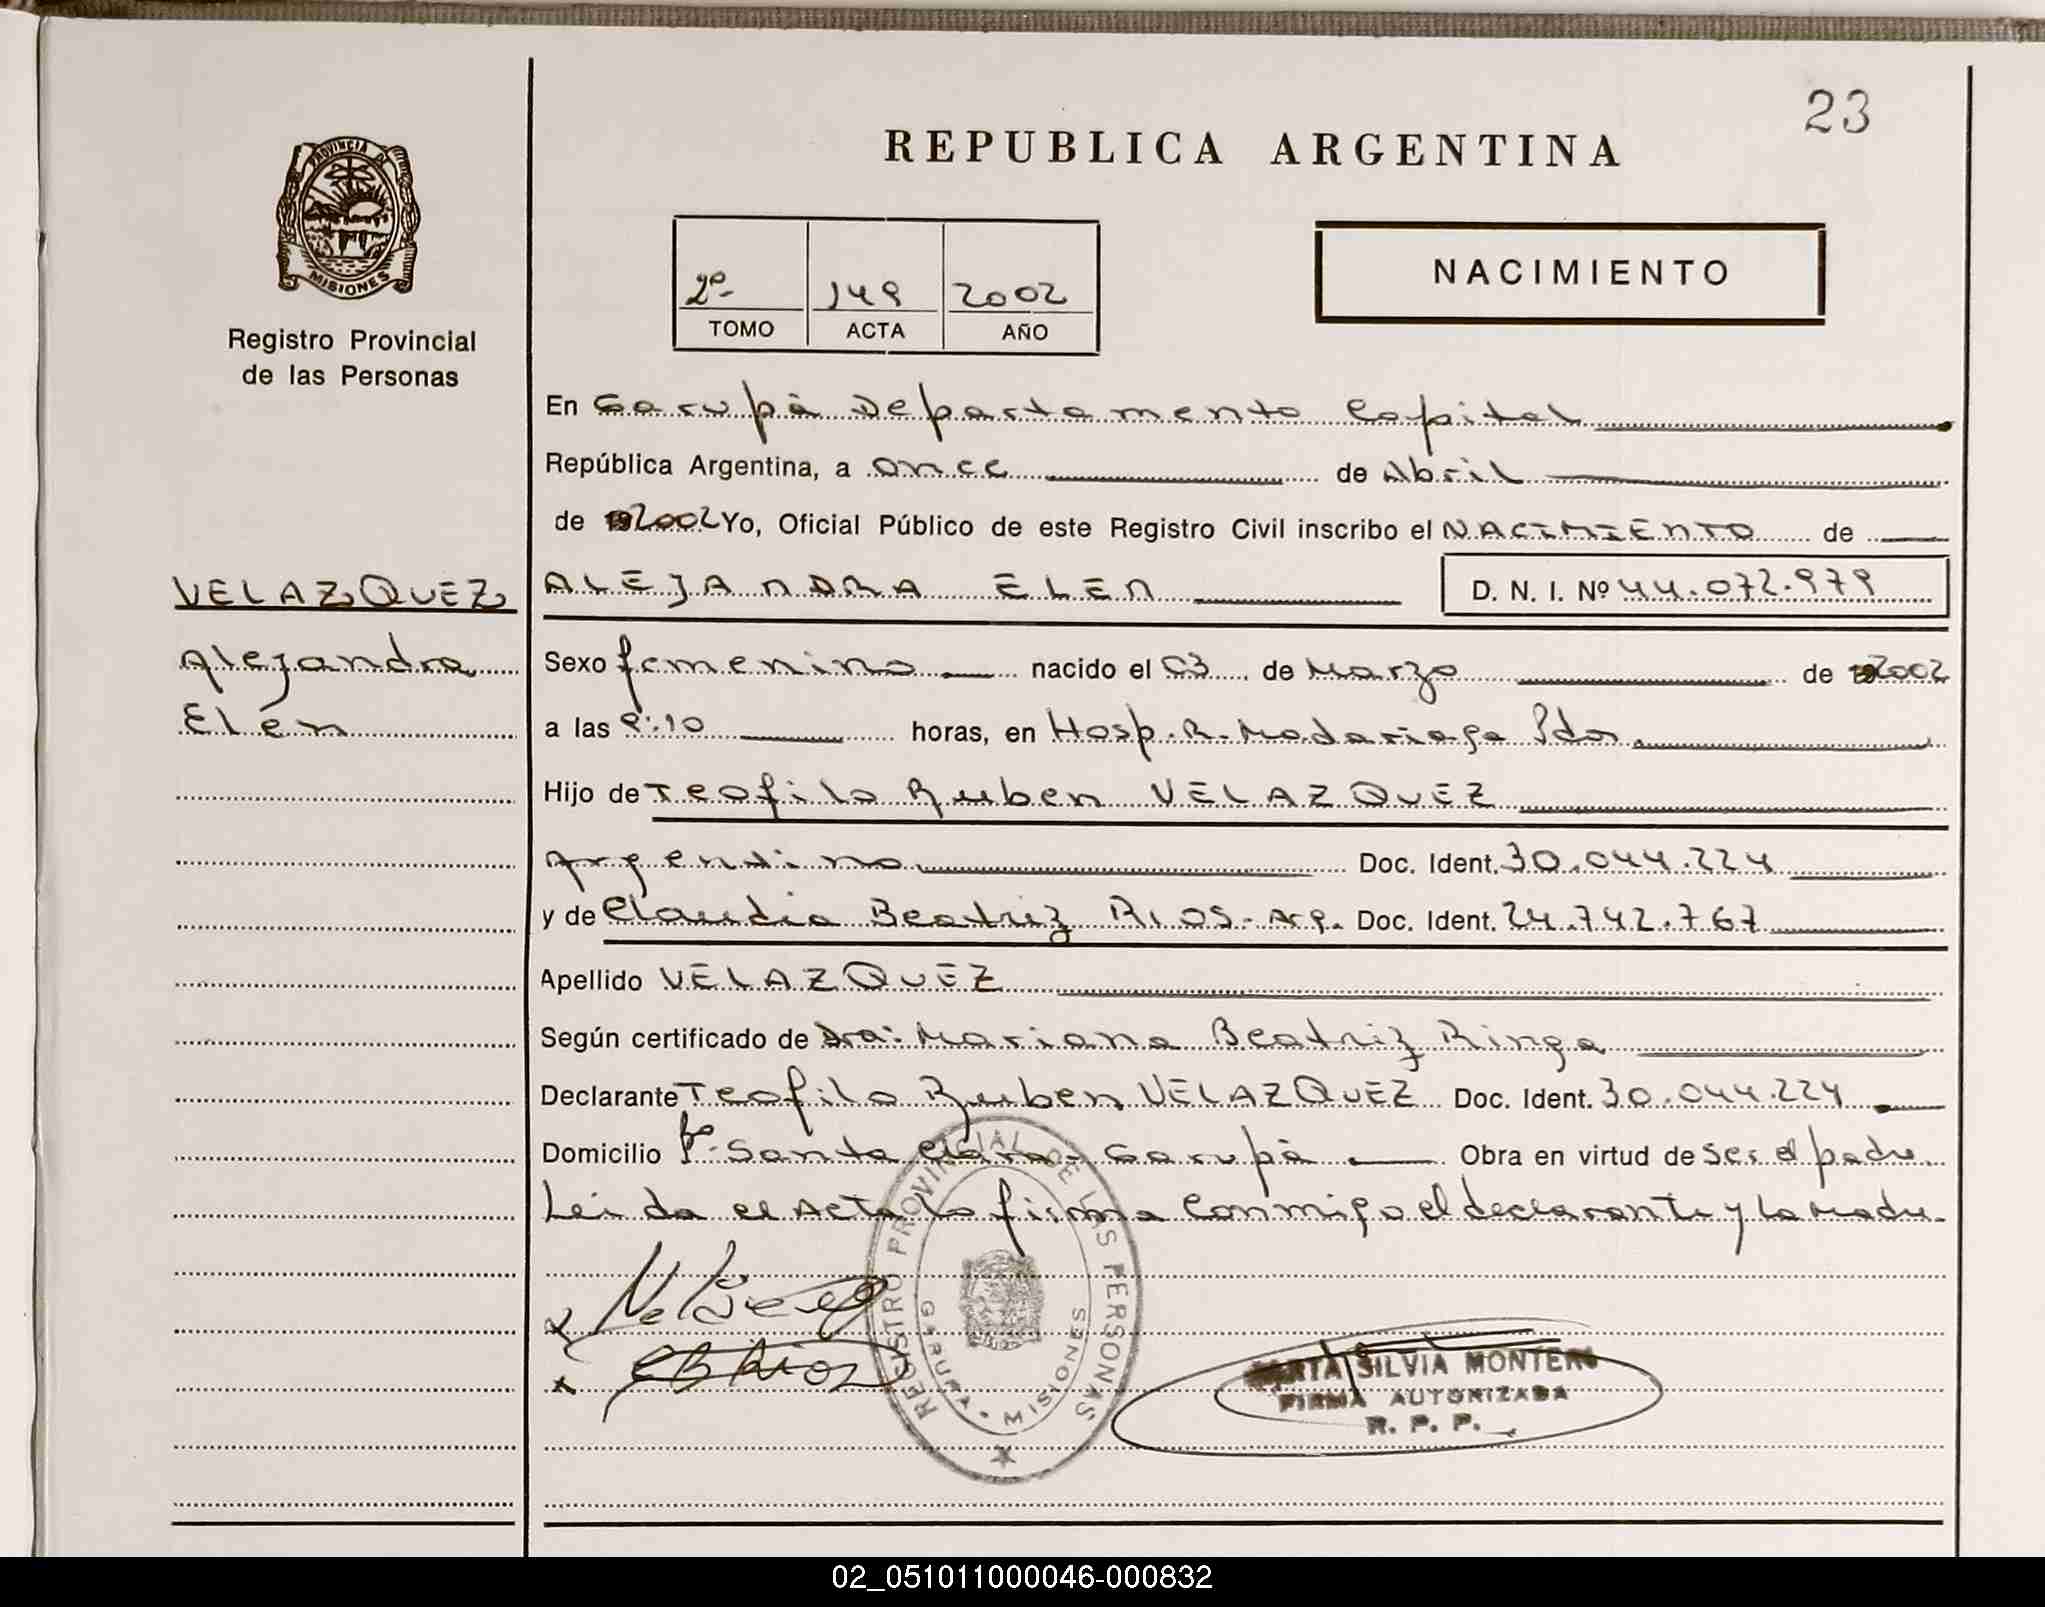 23
REPUBLICA ARGENTINA
PROVINCIA DE
MISIONES
Registro Provincial
de las Personas
2º 149 2002
TOMO ACTA AÑO
NACIMIENTO
En Garupá Departamento Capital
República Argentina, a once de Abril
de 2002 Yo, Oficial Público de este Registro Civil inscribo el NACIMIENTO de
VELAZQUEZ
Alejandra
Elén
ALEJANDRA ELEN D. N. I. Nº 44.072.979
Sexo femenino nacido el 03 de Marzo de 2002
a las 9:10 horas, en Hosp. R. Madariaga Pdas.
Hijo de Teofilo Ruben VELAZQUEZ
Argentino Doc. Ident. 30.044.224
y de Claudia Beatriz RIOS - Arg. Doc. Ident. 24.742.767
Apellido VELAZQUEZ
Según certificado de Dra: Mariana Beatriz Ringa
Declarante Teofilo Ruben VELAZQUEZ Doc. Ident. 30.044.224
Domicilio Bº Santa Clara - Garupá Obra en virtud de ser el padre
Leida el Acta la firma conmigo el declarante y la Madre.
CB Rios
REGISTRO PROVINCIAL DE LAS PERSONAS
GARUPA - MISIONES
SILVIA MONTERO
FIRMA AUTORIZADA
R. P. P.
02_051011000046-000832